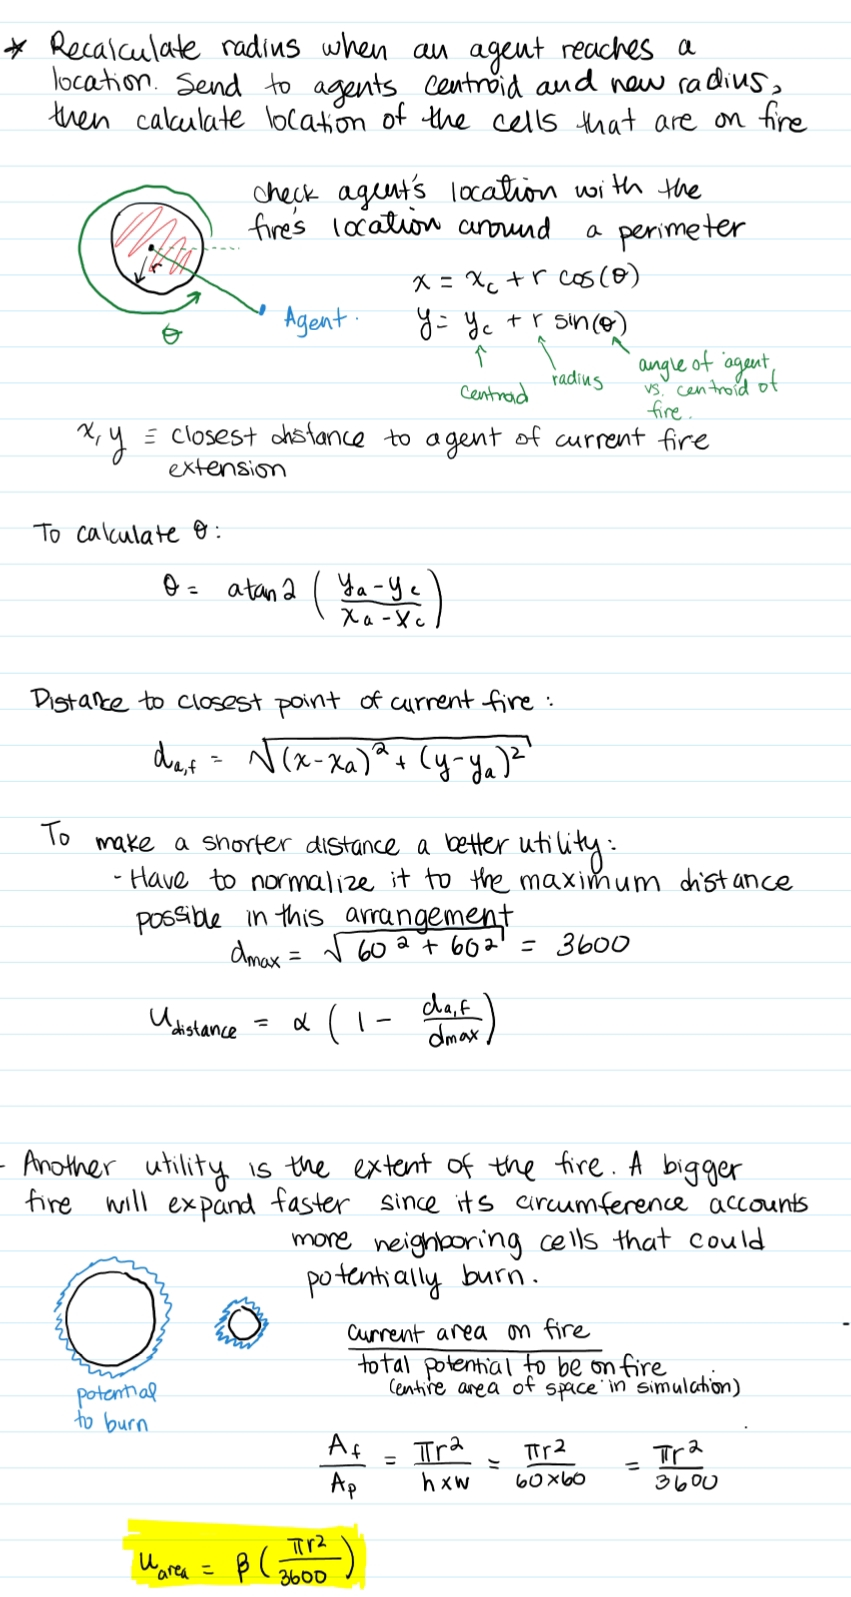 * Recalculate radius when an agent reaches a
location. Send to agents centroid and new radius,
then calculate location of the cells that are on fire
check agent's location with the
fire's location around a perimeter
r
θ
Agent.
x = x_c + r cos(θ)
y = y_c + r sin(θ)
centroid
radius
angle of agent
vs. centroid of
fire.
x, y ≡ closest distance to agent of current fire
extension
To calculate θ:
θ = atan2 ( (y_a - y_c) / (x_a - x_c) )
Distance to closest point of current fire:
d_a,f = √((x-x_a)² + (y-y_a)²)
To make a shorter distance a better utility:
- Have to normalize it to the maximum distance
possible in this arrangement
d_max = √(60² + 60²) = 3600
U_distance = α ( 1 - d_a,f / d_max )
- Another utility is the extent of the fire. A bigger
fire will expand faster since its circumference accounts
more neighboring cells that could
potentially burn.
potential
to burn
current area on fire
total potential to be on fire
(entire area of space in simulation)
A_f / A_p = πr² / h×w = πr² / 60×60 = πr² / 3600
U_area = β ( πr² / 3600 )